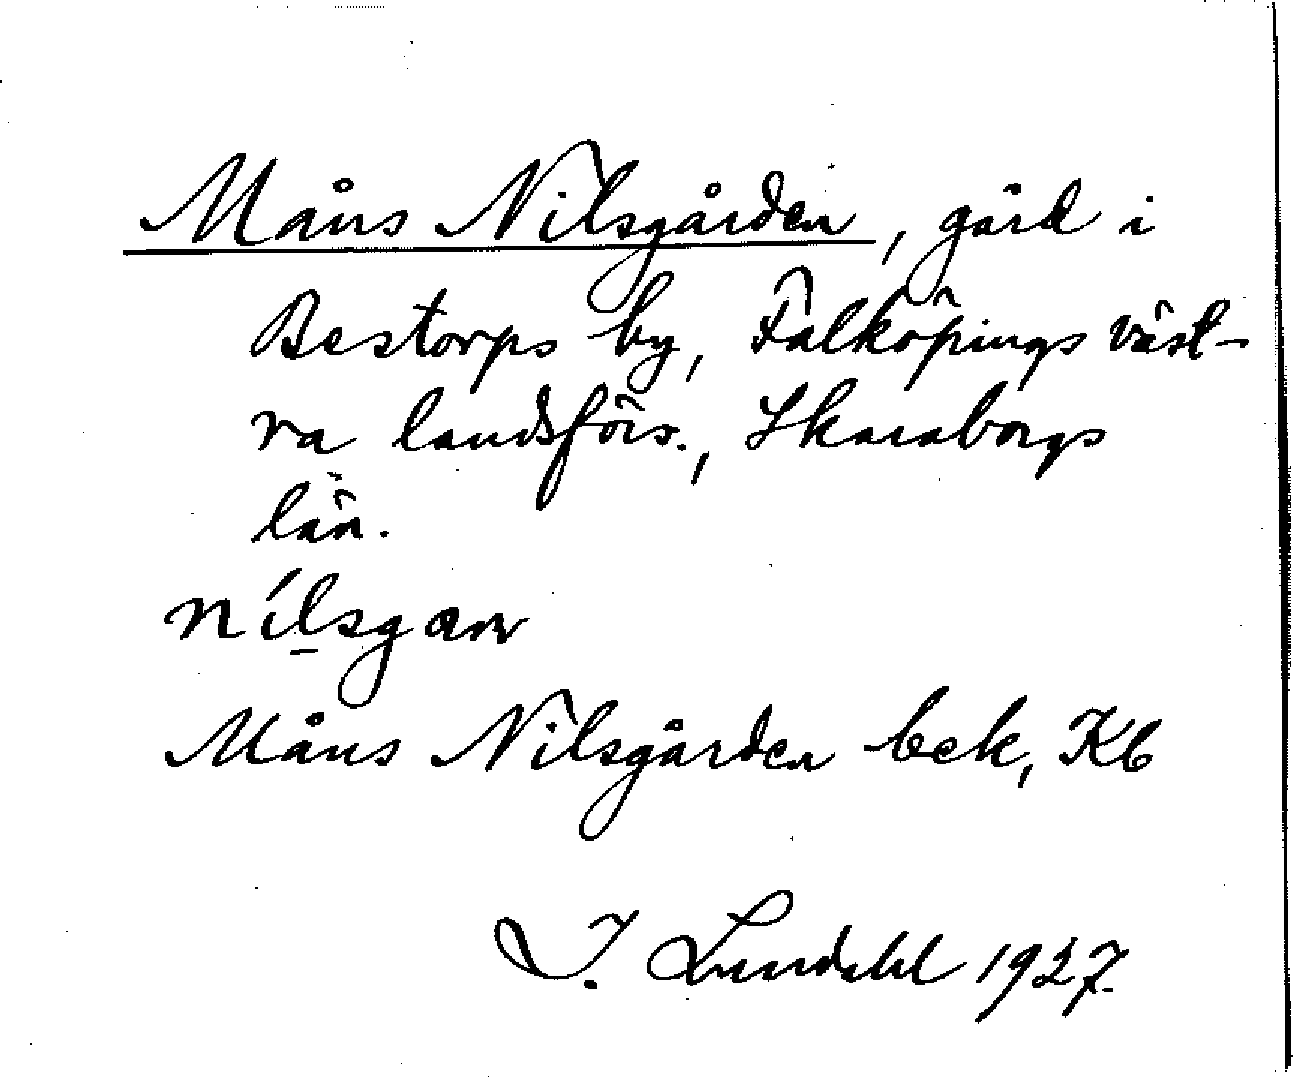 Måns Nilsgården, gård i
Bestorps by, Falköpings väst-
ra landsförs., Skaraborgs
län.
nílsgarn
Måns Nilsgården bek, Kb
I. Lundahl 1927.